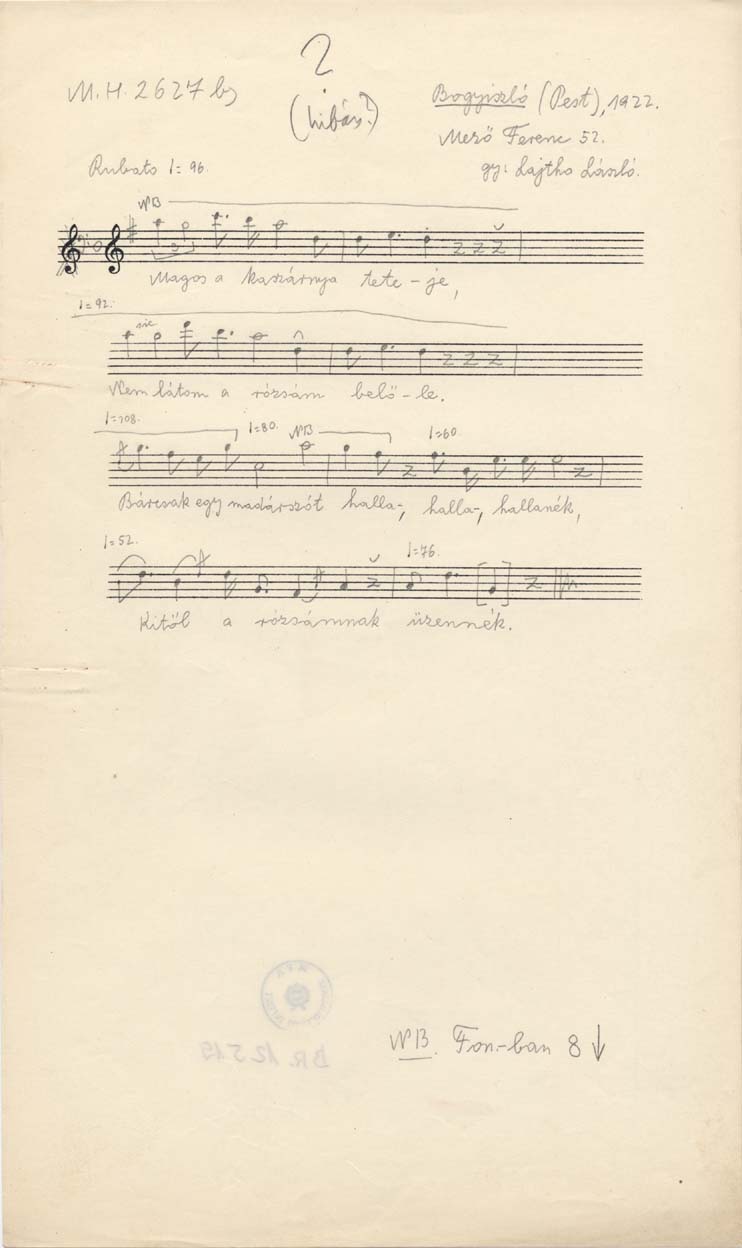 2
M.H. 2627 b)
(hibás?)
Bogyiszló (Pest), 1922.
Mező Ferenc 52.
gy: Lajtha László.
Rubato ♩= 96.
NB
Magos a kaszárnya tete-je,
♩=92.
sic
Nem látom a rózsám belő-le.
♩=108. ♩=80. NB ♩=60
Bárcsak egy madárszót halla-, halla-, hallanék,
♩=52. ♩=76.
Kitől a rózsámnak üzennék.
NB. Fon.-ban 8 ↓